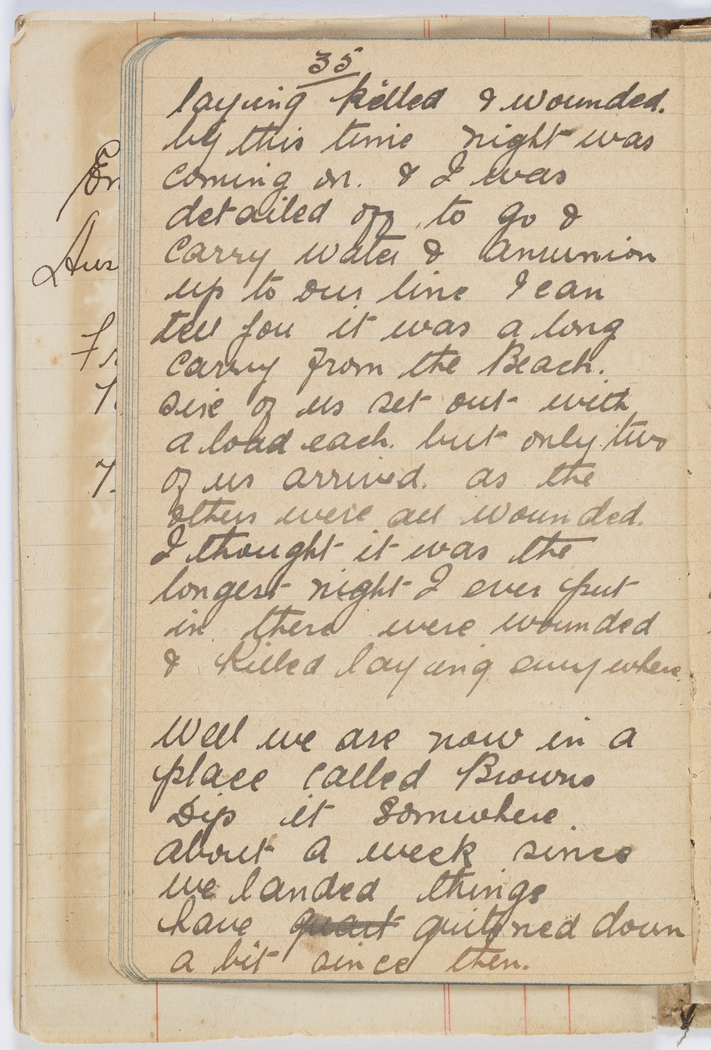 35
laying killed & wounded.
by this time night was
coming on. & I was
detailed off, to go &
carry water & amunion
up to our line I can
tell you it was a long
carry from the Beach.
sixe of us set out with
a load each. but only two
of us arrived. as the
others were all wounded.
I thought it was the
longest night I ever put
in there were wounded
& killed laying eveywhere.
Well we are now in a
place called Browns
Dip it somewhere
about a week since
we landed things
have quait quitened down
a bit since then.